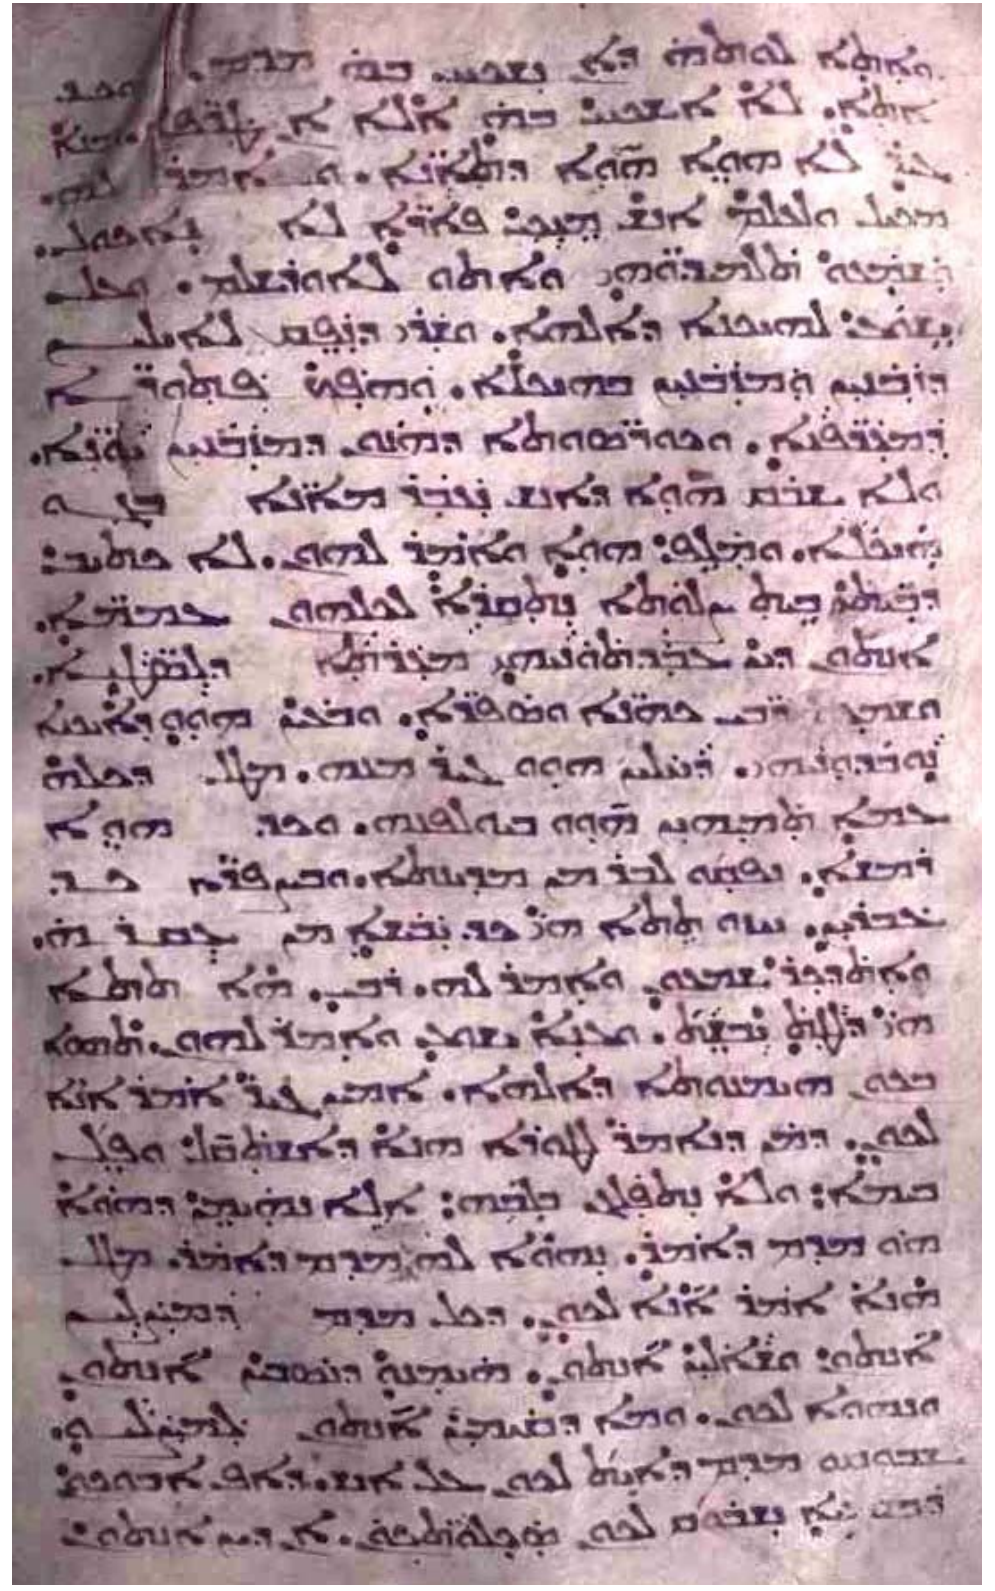 ܘܐܬܐ ܠܘܬܗ ܕܐܢ ܢܫܟܚ ܒܗ ܡܕܡ. ܘܟܕ
ܐܬܬ. ܠܐ ܐܫܟܚ ܒܗ ܐܠܐ ܐܢ ܛܪ̈ܦܐ. ܙܒܢܐ
ܓܝܪ ܠܐ ܗܘܐ ܗܘܐ ܕܬܐܢ̈ܐ. ܘܐܡܪ ܠܗ.
ܡܟܝܠ ܘܠܥܠܡ ܐܢܫ ܡܢܟܝ ܦܐܪ̈ܐ ܠܐ ܢܐܟܘܠ.
ܘܫܡܥܘ ܬܠܡܝܕ̈ܘܗܝ ܘܐܬܘ ܠܐܘܪܫܠܡ. ܘܥܠ
ܝܫܘܥ ܠܗܝܟܠܐ ܕܐܠܗܐ. ܘܫܪܝ ܕܢܦܩ ܠܐܝܠܝܢ
ܕܙܒܢܝܢ ܘܡܙܒܢܝܢ ܒܗܝܟܠܐ. ܘܗܦܟ ܦܬܘܪ̈ܐ
ܕܡܥܪ̈ܦܢܐ. ܘܟܘܪ̈ܣܘܬܐ ܕܗܢܘܢ ܕܡܙܒܢܝܢ ܝܘܢ̈ܐ.
ܘܠܐ ܫܒܩ ܗܘܐ ܕܐܢܫ ܢܥܒܪ ܡܐܢ̈ܐ ܒܓܘ
ܗܝܟܠܐ. ܘܡܠܦ ܗܘܐ ܘܐܡܪ ܠܗܘܢ. ܠܐ ܟܬܝܒ
ܕܒܝܬܝ ܒܝܬ ܨܠܘܬܐ ܢܬܩܪܐ ܠܟܠܗܘܢ ܥܡܡ̈ܐ.
ܐܢܬܘܢ ܕܝܢ ܥܒܕܬܘܢܝܗܝ ܡܥܪܬܐ ܕܠܣ̈ܛܝܐ.
ܘܫܡܥܘ ܪ̈ܒܝ ܟܗܢ̈ܐ ܘܣܦܪ̈ܐ. ܘܒܥܝܢ ܗܘܘ ܕܐܝܟܢܐ
ܢܘܒܕܘܢܝܗܝ. ܕܚܠܝܢ ܗܘܘ ܓܝܪ ܡܢܗ. ܡܛܠ ܕܟܠܗ
ܥܡܐ ܬܡܝܗܝܢ ܗܘܘ ܒܝܘܠܦܢܗ. ܘܟܕ ܗܘܐ
ܪܡܫܐ. ܢܦܩܘ ܠܒܪ ܡܢ ܡܕܝܢܬܐ. ܘܒܨܦܪܐ ܟܕ
ܥܒܪܝܢ. ܚܙܘ ܬܬܐ ܗܝ ܟܕ ܝܒܝܫܐ ܡܢ ܥܩܪܗ.
ܘܐܬܕܟܪ ܫܡܥܘܢ ܘܐܡܪ ܠܗ. ܪܒܝ. ܗܐ ܬܬܐ
ܗܝ ܕܠܛܬ ܝܒܫܬ. ܘܥܢܐ ܝܫܘܥ ܘܐܡܪ ܠܗܘܢ. ܬܗܘܐ
ܒܟܘܢ ܗܝܡܢܘܬܐ ܕܐܠܗܐ. ܐܡܝܢ ܓܝܪ ܐܡܪ ܐܢܐ
ܠܟܘܢ. ܕܡܢ ܕܢܐܡܪ ܠܛܘܪܐ ܗܢܐ ܕܐܫܬܩܠ ܘܦܠ
ܒܝܡܐ: ܘܠܐ ܢܬܦܠܓ ܒܠܒܗ: ܐܠܐ ܢܗܝܡܢ ܕܗܘܐ
ܗܘ ܡܕܡ ܕܐܡܪ. ܢܗܘܐ ܠܗ ܡܕܡ ܕܐܡܪ. ܡܛܠ
ܗܢܐ ܐܡܪ ܐܢܐ ܠܟܘܢ. ܕܟܠ ܡܕܡ ܕܡܨܠܝܢ
ܐܢܬܘܢ ܘܫܐܠܝܢ ܐܢܬܘܢ. ܗܝܡܢܘ ܕܢܣܒܝܢ ܐܢܬܘܢ.
ܘܢܗܘܐ ܠܟܘܢ. ܘܡܐ ܕܩܝܡܝܢ ܐܢܬܘܢ ܠܡܨܠܝܘ.
ܫܒܘܩܘ ܡܕܡ ܕܐܝܬ ܠܟܘܢ ܥܠ ܐܢܫ. ܕܐܦ ܐܒܘܟܘܢ
ܕܒܫܡܝܐ ܢܫܒܘܩ ܠܟܘܢ ܣܟܠܘ̈ܬܟܘܢ. ܐܢ ܕܝܢ ܐܢܬܘܢ